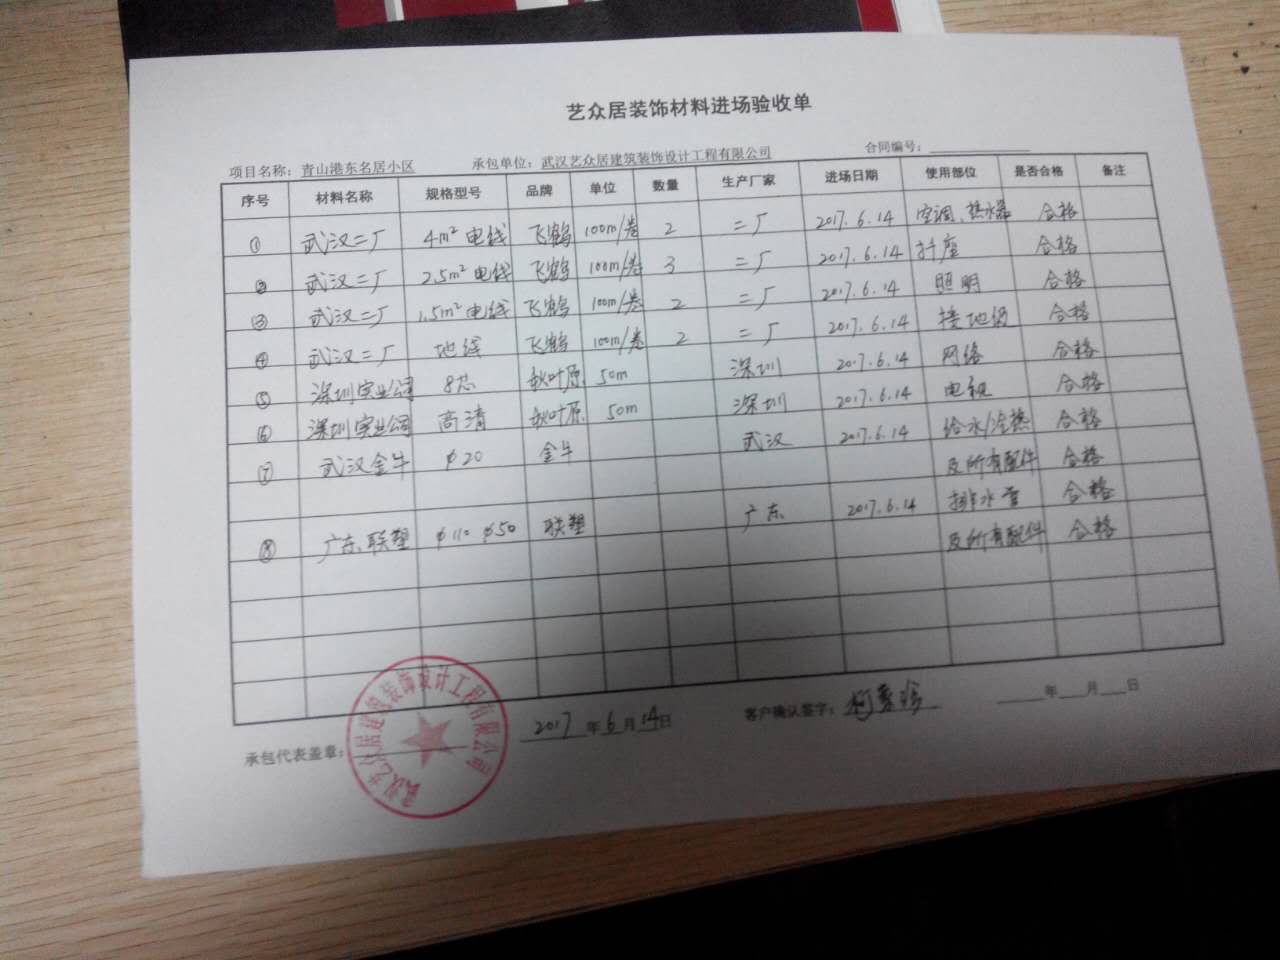 艺众居装饰材料进场验收单
项目名称：青山港东名居小区 承包单位：武汉艺众居建筑装饰设计工程有限公司 合同编号：
序号 材料名称 规格型号 品牌 单位 数量 生产厂家 进场日期 使用部位 是否合格 备注
① 武汉二厂 4m² 电线 飞鹤 100m/卷 2 二厂 2017.6.14 空调、热水器 合格
② 武汉二厂 2.5m² 电线 飞鹤 100m/卷 3 二厂 2017.6.14 插座 合格
③ 武汉二厂 1.5m² 电线 飞鹤 100m/卷 2 二厂 2017.6.14 照明 合格
④ 武汉二厂 地线 飞鹤 100m/卷 2 二厂 2017.6.14 接地线 合格
⑤ 深圳实业公司 8芯 秋叶原 50m 深圳 2017.6.14 网络 合格
⑥ 深圳实业公司 高清 秋叶原 50m 深圳 2017.6.14 电视 合格
⑦ 武汉金牛 φ20 金牛 武汉 2017.6.14 给水/冷热 合格
及所有配件 合格
⑧ 广东联塑 φ110 φ50 联塑 广东 2017.6.14 排水管 合格
及所有配件 合格
承包代表盖章： 2017年6月14日 客户确认签字： 年 月 日
武汉艺众居建筑装饰设计工程有限公司